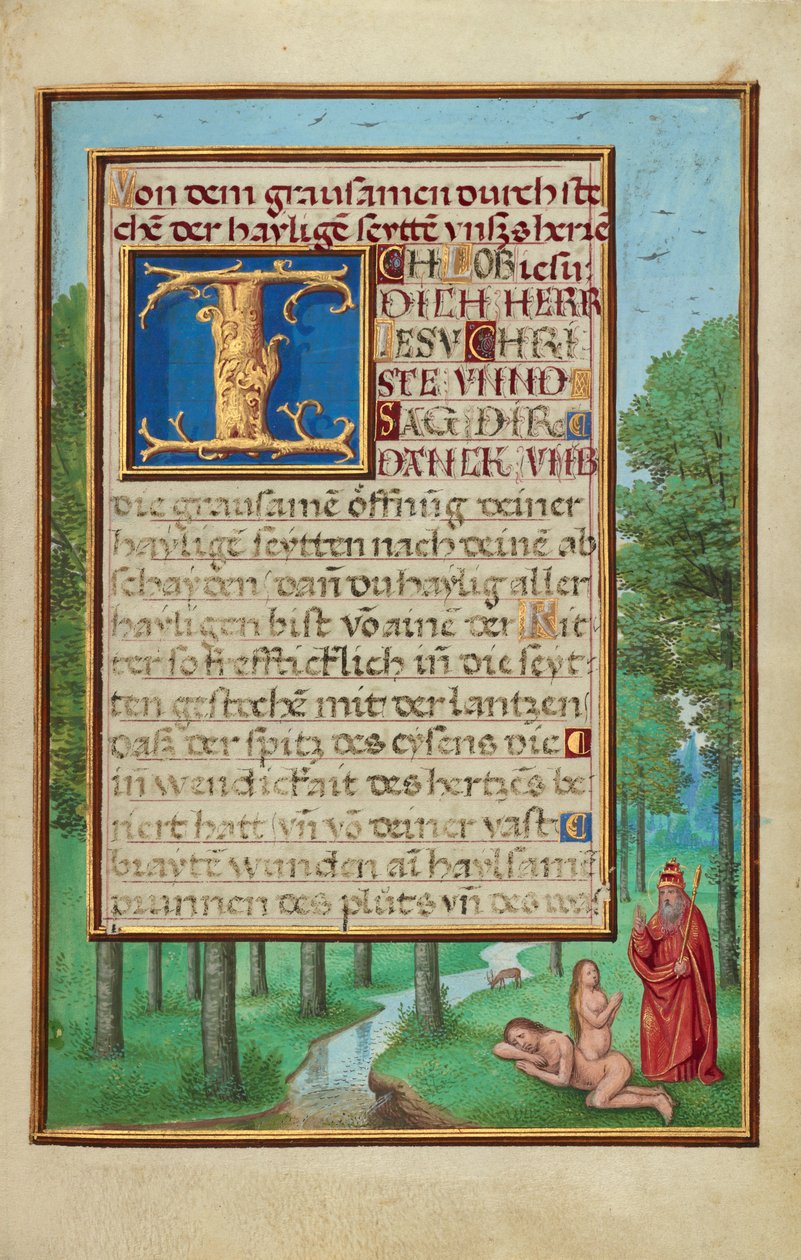 Von dem grausamen durch ste
chē der hayligē seyttē vnsz̧s herrē
I CH LOB iesu:
DICH HERR
IESV CHRI-
STE VNND
SAG DIR
DANCK VMB
die grausamē öffnūg deiner
hayligē seytten nach deinē ab
schayden / dan̄ du haylig aller
hayligen bist vō ainē der Rit-
ter so kreffticklich in̄ die seyt:
ten gestochē mit der lantzen /
dasz der spitz des eysens die
in wendickait des hertzēs be-
riert hatt / vn̄ vō deiner vast
braytē wunden ai᷑ haylsamē
prunnen des plůts vn̄ des was